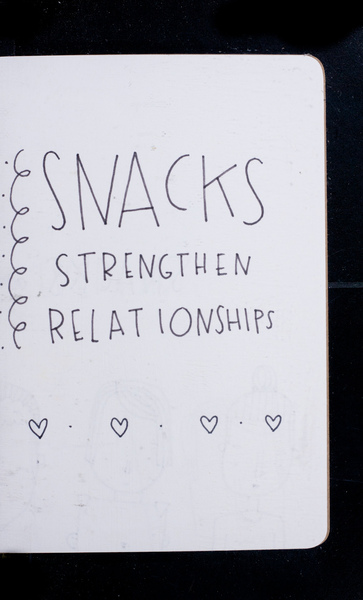 SNACKS
STRENGTHEN
RELATIONSHIPS